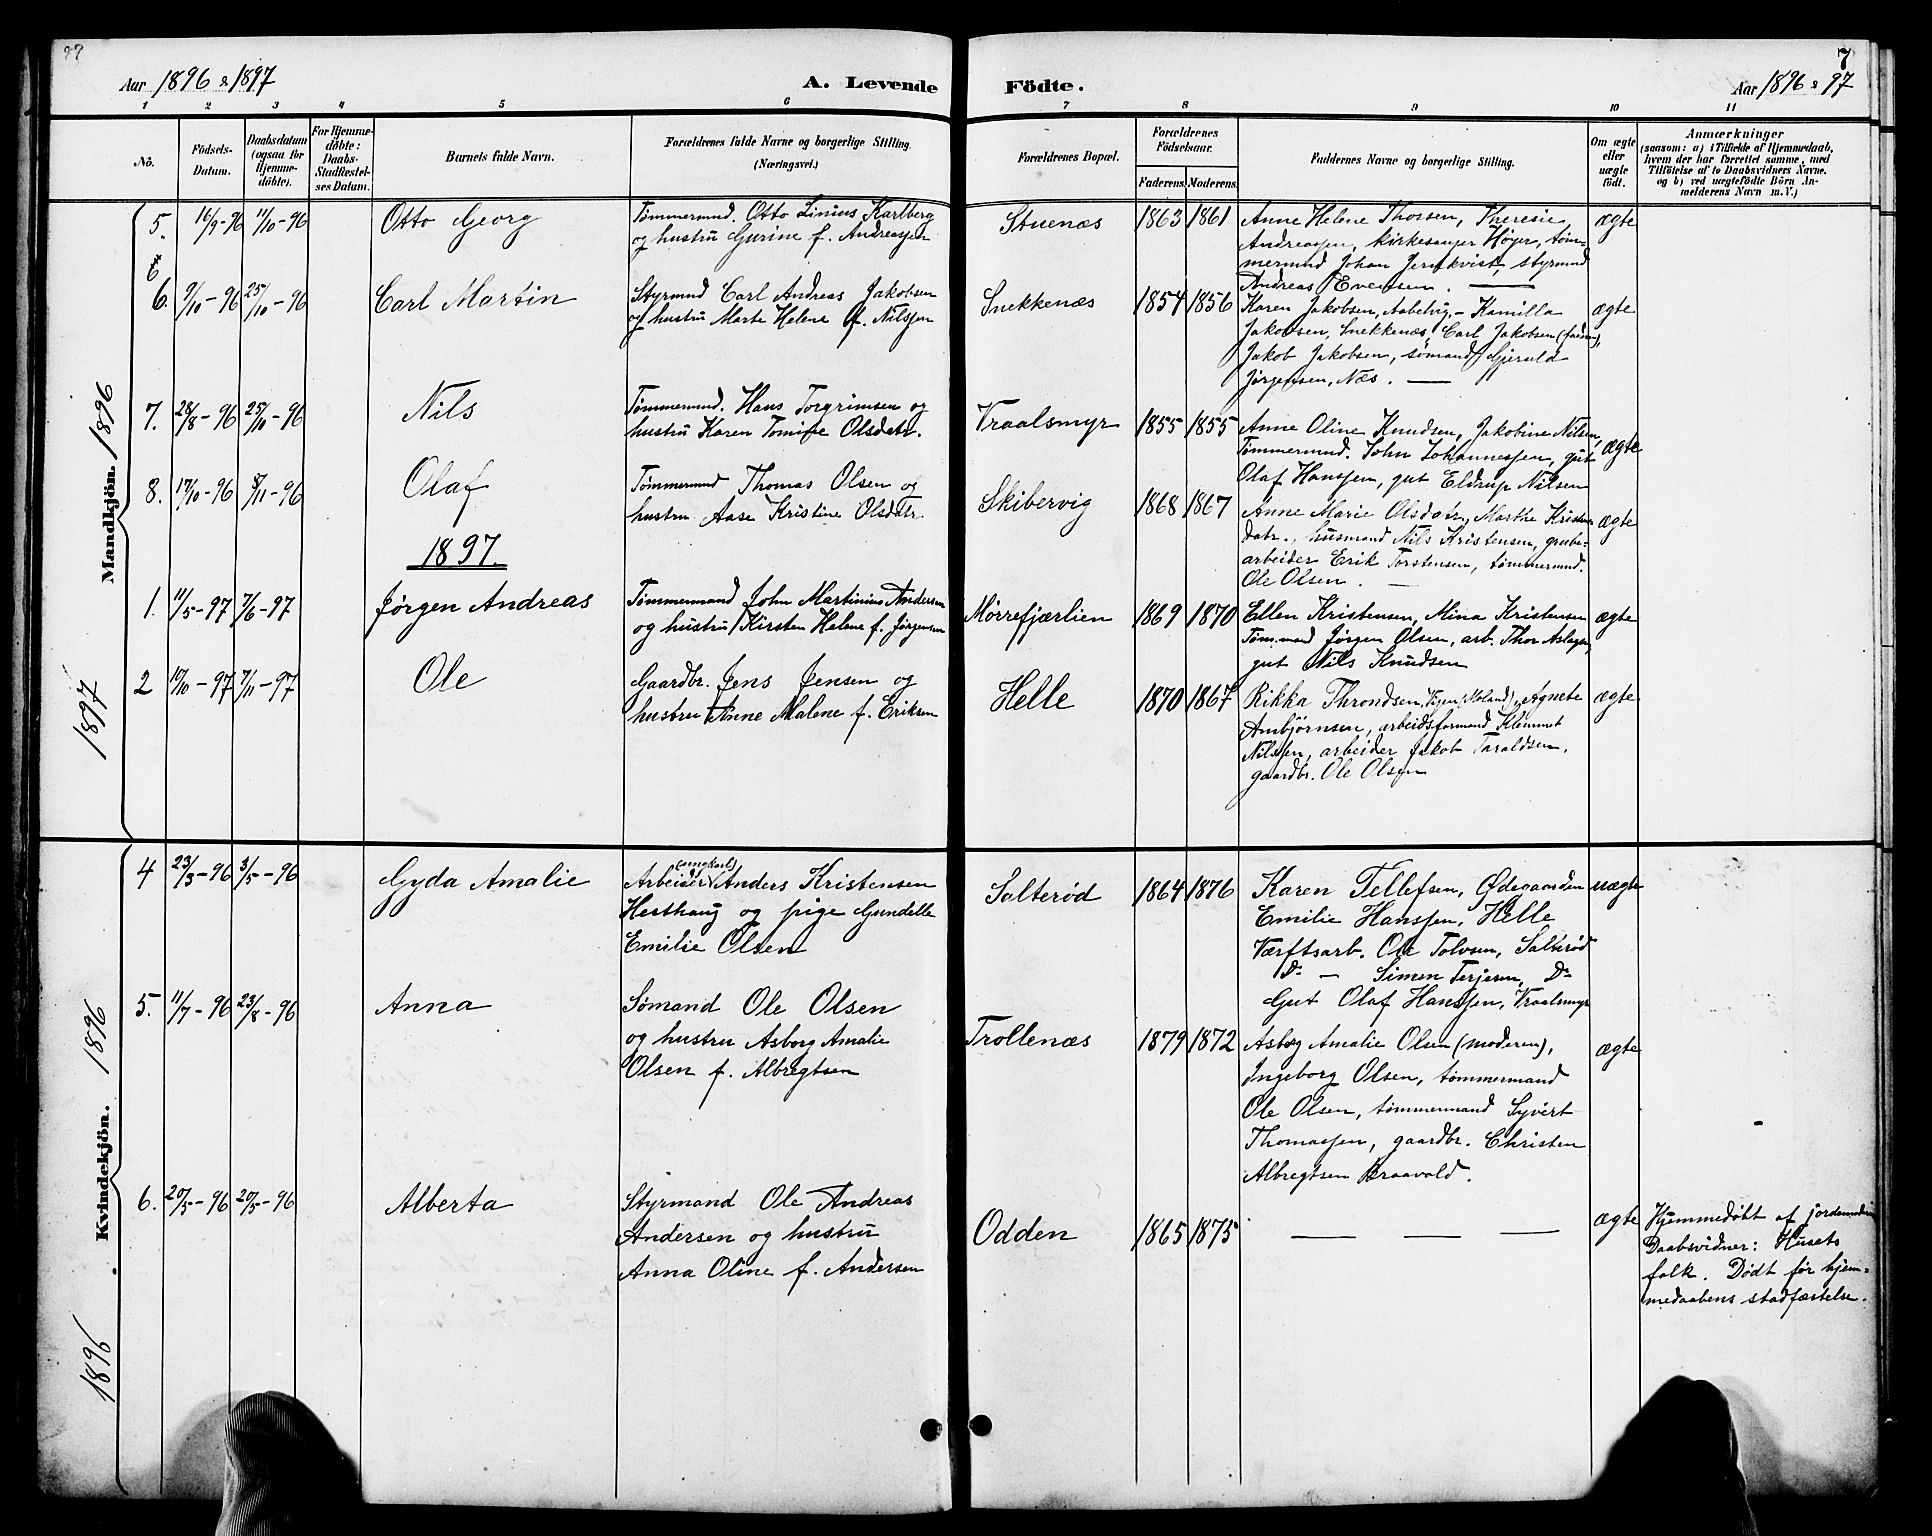 Aar 1896 & 1897
A. Levende
Födte.
7
Aar 1896 & 97
1 2 3 4 5 6 7 8 9 10 11
No.
Födsels-
Datum.
Daabsdatum
(ogsaa for
Hjemme-
döbte).
For Hjemme-
döbte:
Daabs-
Stadfæstel-
ses Datum.
Barnets fulde Navn.
Forældrenes fulde Navne og borgerlige Stilling.
(Næringsvei.)
Forældrenes Bopæl.
Forældrenes
Födselsaar.
Faderens. Moderens.
Faddernes Navne og borgerlige Stilling.
Om ægte
eller
uægte
födt.
Anmærkninger
(saasom: a) i Tilfælde af Hjemmedaab,
hvem der har forrettet samme, med
Tilföielse af to Daabsvidners Navne,
og b) ved uægtefödte Börn An-
melderens Navn m. V.)
Mandkjön. 1896
5. 16/9-96 11/10-96 Otto Georg
Tømmermnd. Otto Linius Karlberg
og hustru Gurine f. Andreassen
Stuenæs 1863 1861
Anne Helene Thorsen, Theresie
Andreassen, kirkesanger Høyer, tøm-
mermnd Johan Jernkvist, styrmnd
Andreas Evensen. —
ægte
6. 9/10-96 25/10-96 Carl Martin
Styrmnd Carl Andreas Jakobsen
og hustru Marte Helene f. Nilssen
Snekkenæs 1854 1856
Karen Jakobsen, Aabelvig, - Kamilla
Jakobsen, Snekkenæs, Carl Jakobsen (faderen),
Jakob Jakobsen, sømand, Gjeruld
Jørgensen, Næs. —
ægte
7. 28/8-96 25/10-96 Nils
Tømmermnd. Hans Torgrimsen og
hustru Karen Tomine Olsdatr.
Vraalsmyr 1855 1855
Anne Oline Knudsen, Jakobine Nilsen,
Tømmermnd. John Johannessen, gut
Olaf Hanssen, gut Eldrup Nilsen
ægte
8. 17/10-96 8/11-96 Olaf
Tømmermnd Thomas Olsen og
hustru Aase Kristine Olsdatr.
Skibervig 1868 1867
Anne Marie Olsdatr., Marthe Kristens
datr., husmand Nils Kristensen, grube-
arbeider Erik Torstensen, tømmermnd.
Ole Olsen. —
ægte
1897.
1897
1. 11/5-97 7/6-97 Jørgen Andreas
Tømmermand John Martinius Andersen
og hustru Kirsten Helene f. Jørgensen
Mørrefjærlien 1869 1870
Ellen Kristensen, Mina Kristensen
Tøm.mand Jørgen Olsen, arb. Thor Aslagsen,
gut Nils Knudsen
ægte
2 10/10-97 7/11-97 Ole
Gaardbr. Jens Jensen og
hustru Anne Malene f. Eriksen
Helle 1870 1867
Rikka Throndsen, (Moland), Agnete
Ambjørnsen, arbeidsformand Klemmet
Nilssen, arbeider Jakob Taraldsen,
gaardbr. Ole Olsen
ægte
Kvindekjön. 1896
4 23/3-96 3/5-96 Gyda Amalie
(ungkarl)
Arbeider Anders Kristensen
Hesthaug og pige Gundelle
Emilie Olsen
Salterød 1864 1876
Karen Tellefsen, Ødegaarden
Emilie Hanssen, Helle
Værftsarb. Ole Tolvsen, Salterød
Do — Simen Terjesen, Do
Gut Olaf Hanssen, Vraalsmyr
uægte
5. 11/7-96 23/8-96 Anna
Sømand Ole Olsen
og hustru Asborg Amalie
Olsen f. Albregtsen
Trollenæs 1879 1872
Asborg Amalie Olsen (moderen),
Ingeborg Olsen, tømmermand
Ole Olsen, tømmermand Syvert
Thomassen, gaardbr. Christen
Albregtsen Braavold.
ægte
6. 20/5-96 20/5-96 Alberta
Styrmand Ole Andreas
Andersen og hustru
Anna Oline f. Andersen
Odden 1865 1875
— — —
ægte
Hjemmedøbt af jordemoderen
Daabsvidner: Husets
folk. Dødt før hjem-
medaabens stadfæstelse.
1896